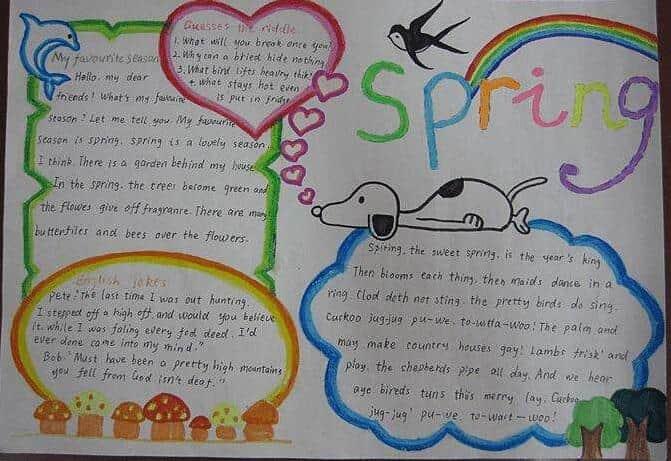 My favourite season
Hallo, my dear
friends! What's my favourite
season? Let me tell you. My favourite
season is spring. spring is a lovely season.
I think. There is a garden behind my house
In the spring. the trees become green and
the flowes give off fragranre. There are many
butterflies and bees over the flowers.
Guesses the riddle
1. What will you break once you
2. Why can a bried hide nothing
3. What bird lifts heavry thik
4. what stays hot even
is put in fridge
Spring
English jokes
Pete: "The last time I was out hunting.
I stepped off a high off and would you believe
it. while I was faling every fed deed. I'd
ever done come into my mind."
Bob. "Must have been a pretty high mountains
you fell from God isn't deaf."
Spiring, the sweet spring, is the year's king
Then blooms each thing, then maids dance in a
ring. Clod doth not sting. the pretty birds do sing.
Cuckoo jug-jug pu-we. to-witta-woo! The palm and
may make country houses gay! Lambs frisk' and
play. the shepherds pipe all day. And we hear
aye bireds tuns this merry. lay. Cuckoo.
jug-jug' pu-we. to-wait-woo!